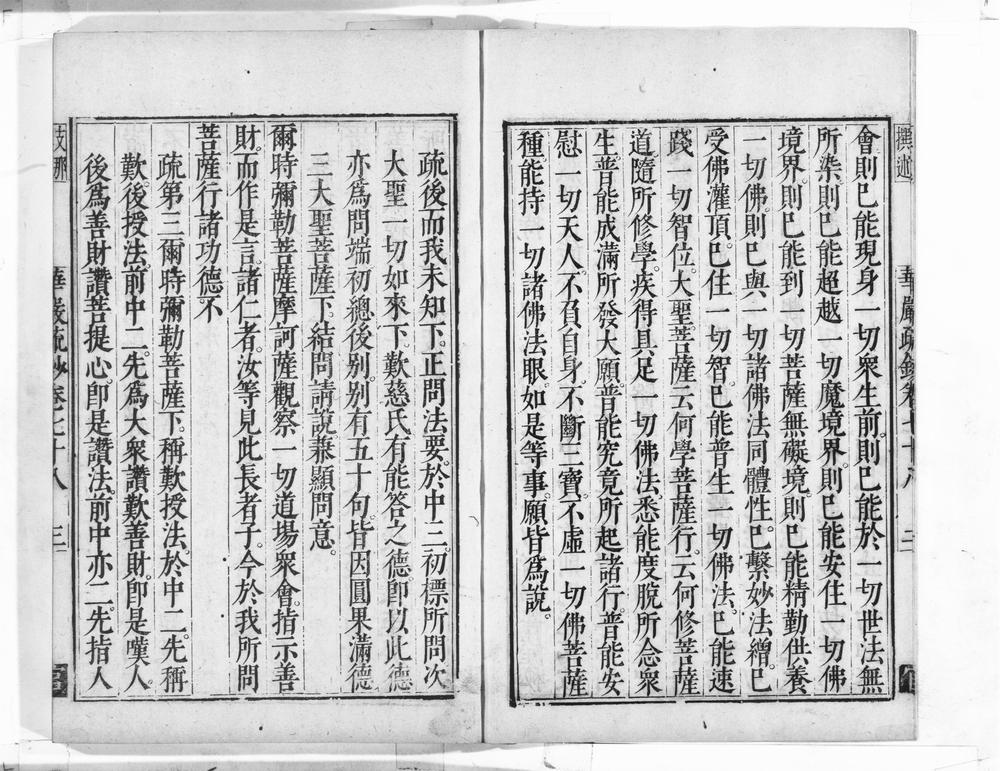 撰述
華嚴疏鈔卷七十八
會則已能現身一切衆生前則已能於一切世法無
所染則已能超越一切魔境界則已能安住一切佛
境界則已能到一切菩薩無礙境則已能精勤供養
一切佛則已與一切諸佛法同體性已繫妙法繒已
受佛灌頂已住一切智已能普生一切佛法已能速
踐一切智位大聖菩薩云何學菩薩行云何修菩薩
道隨所修學疾得具足一切佛法悉能度脫所念衆
生普能成滿所發大願普能究竟所起諸行普能安
慰一切天人不負自身不斷三寶不虛一切佛菩薩
種能持一切諸佛法眼如是等事願皆爲說
疏後而我未知下正問法要於中二初標所問次
大聖一切如來下歎慈氏有能答之德卽以此德
亦爲問端初總後別別有五十句皆因圓果滿德
三大聖菩薩下結問請說兼顯問意
爾時彌勒菩薩摩訶薩觀察一切道場衆會指示善
財而作是言諸仁者汝等見此長者子今於我所問
菩薩行諸功德不
疏第三爾時彌勒菩薩下稱歎授法於中二先稱
歎後授法前中二先爲大衆讚歎善財卽是嘆人
後爲善財讚菩提心卽是讚法前中亦二先指人
支那
華嚴疏鈔卷七十八
三